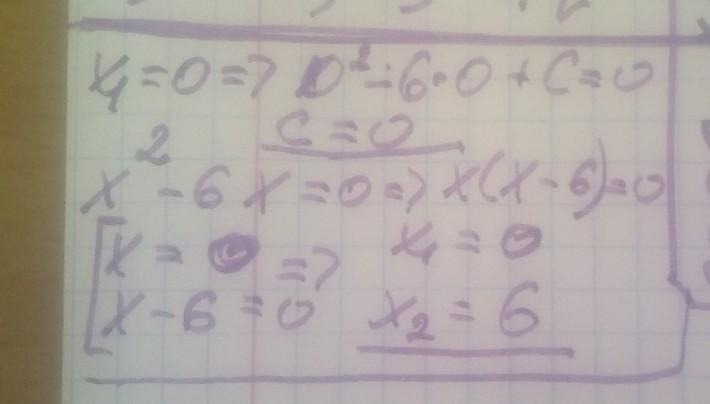 x₁ = 0 => 0² - 6·0 + C = 0
C = 0
x² - 6x = 0 => x(x - 6) = 0
[x = 0 => x₁ = 0
x - 6 = 0 x₂ = 6